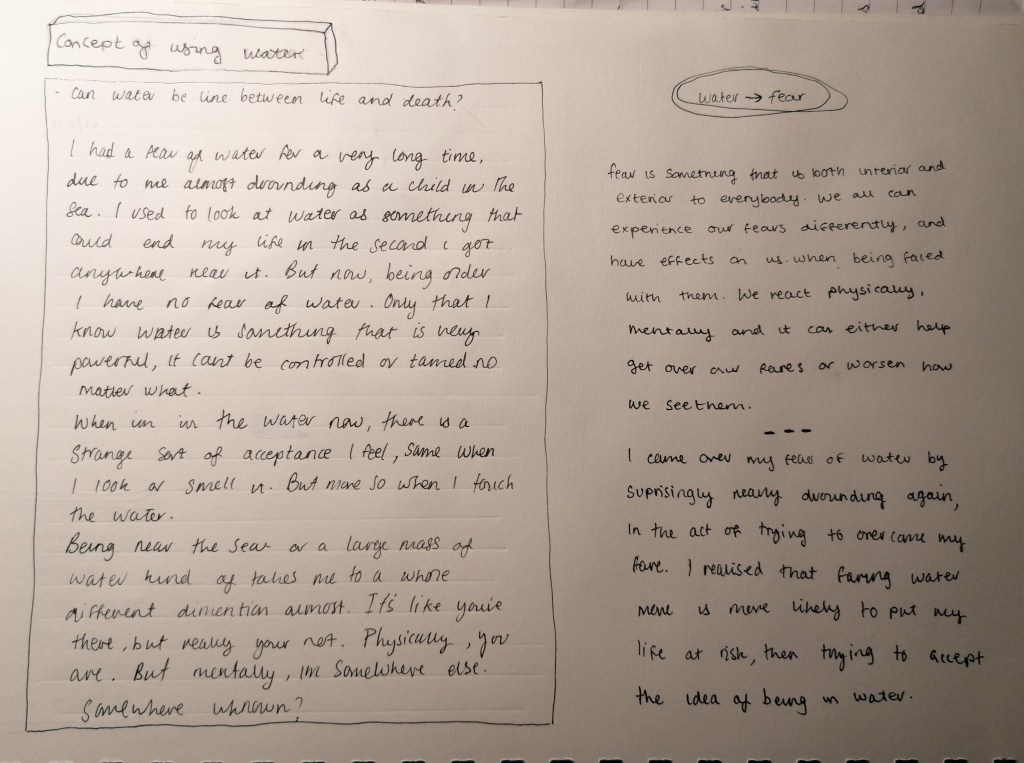 Concept of using water
- Can water be line between life and death?
I had a fear of water for a very long time,
due to me almost drounding as a child in the
sea. I used to look at water as something that
could end my life in the second i got
anywhere near it. But now, being older
I have no fear of water. Only that I
know water is something that is very
powerful, it cant be controlled or tamed no
matter what.
When im in the water now, there is a
strange sort of acceptance I feel, same when
I look or smell it. But more so when I touch
the water.
Being near the sea or a large mass of
water kind of takes me to a whole
different dimention almost. It's like you're
there, but really your not. Physically, you
are. But mentally, im somewhere else.
Somewhere unknown?
water → fear
fear is something that is both interior and
exterior to everybody. We all can
experience our fears differently, and
have effects on us when being faced
with them. We react physically,
mentally and it can either help
get over our feares or worsen how
we see them.
- - -
I came over my fear of water by
suprisingly nearly drounding again,
in the act of trying to overcome my
fare. I realised that faring water
more is more likely to put my
life at risk, then trying to accept
the idea of being in water.